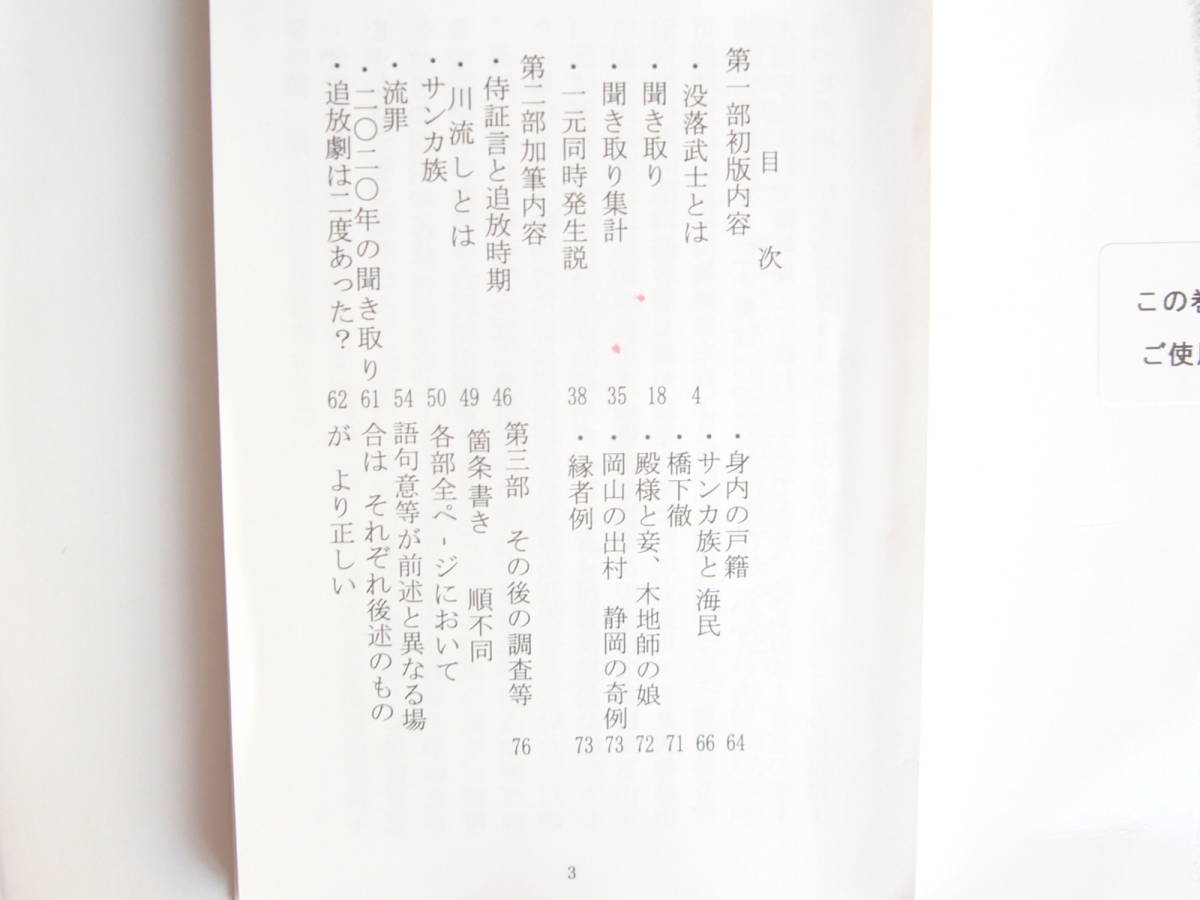 目 次
第一部初版内容
・没落武士とは 4
・聞き取り 18
・聞き取り集計 35
・一元同時発生説 38
第二部加筆内容
・侍証言と追放時期 46
・川流しとは 49
・サンカ族 50
・流罪 54
・二〇二〇年の聞き取り 61
・追放劇は二度あった？ 62
・身内の戸籍 64
・サンカ族と海民 66
・橋下徹 71
・殿様と妾、木地師の娘 72
・岡山の出村 静岡の奇例 73
・縁者例 73
第三部 その後の調査等 76
箇条書き 順不同
各部全ページにおいて
語句意等が前述と異なる場
合は それぞれ後述のもの
が より正しい
3
この
ご使